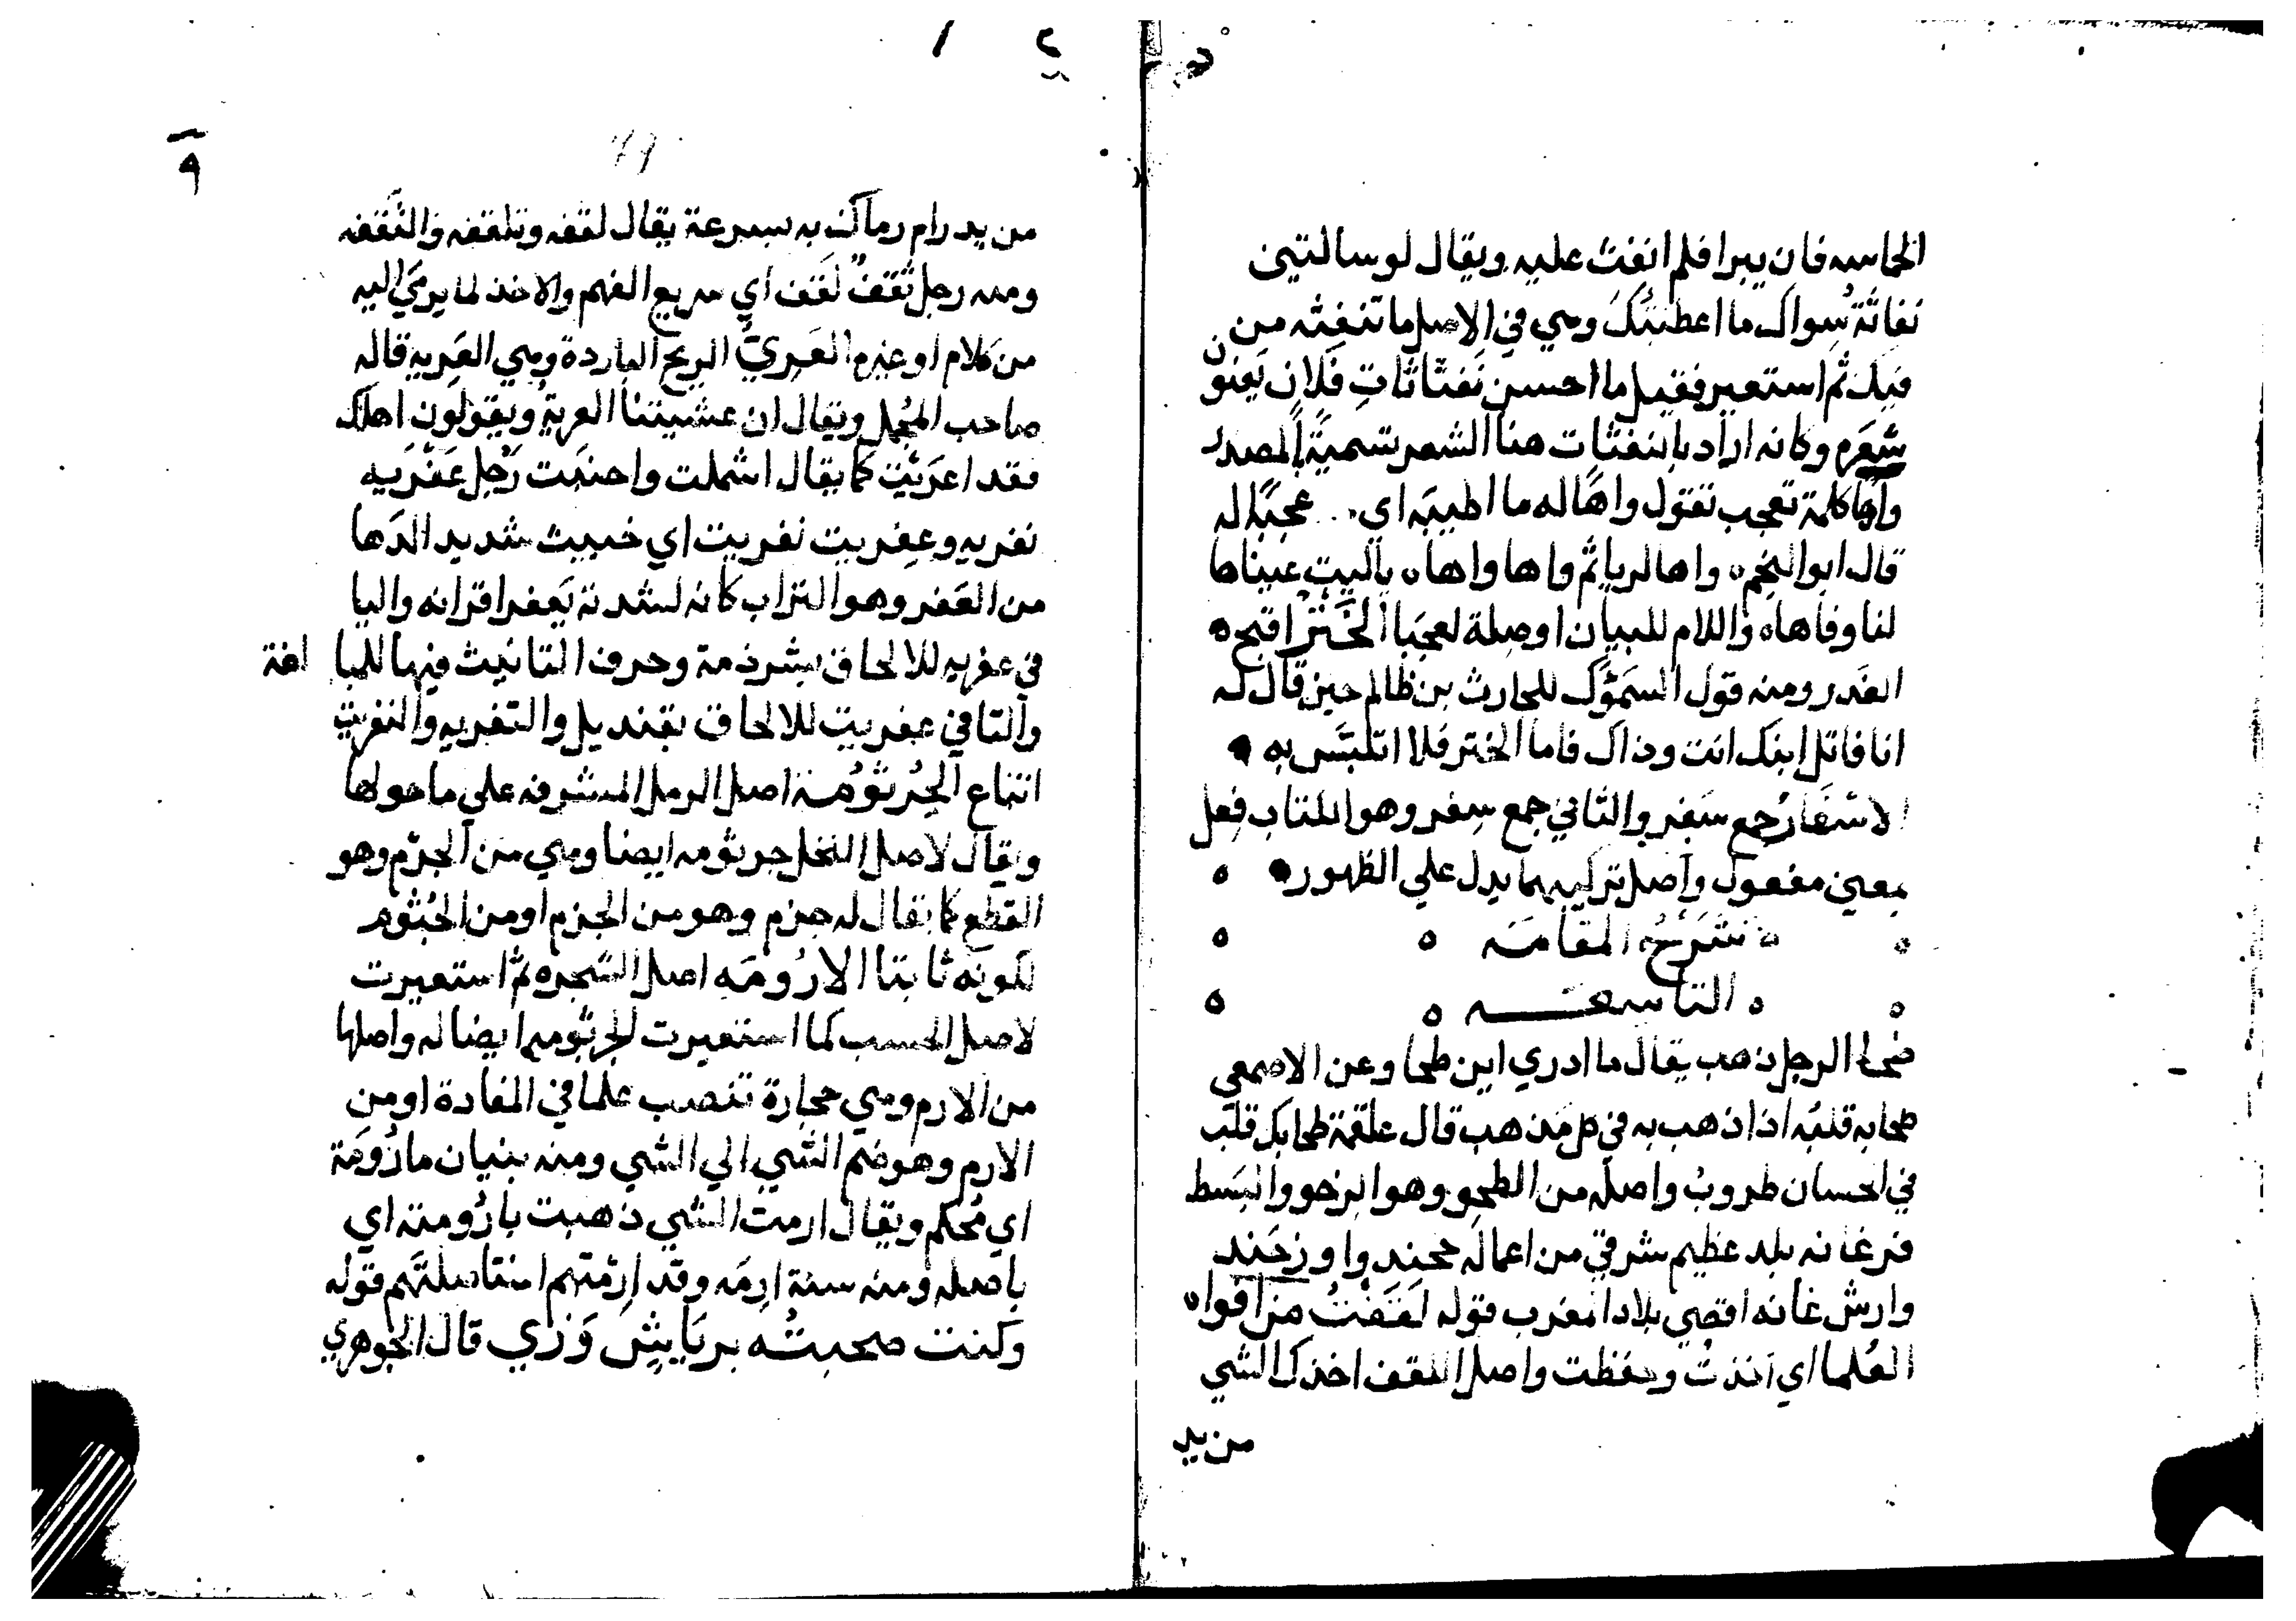 الحماسه فان يبرا فلم انفث عليه ويقال لو سالتني
نفاثة سواك ما اعطيتك وهي في الاصل ما تنفثه من
فيك ثم استعير فقيل ما احسن نفثاثات فلان يعنون
شعره وكانه اراد بالنفثات هنا الشعر تسمية بالمصدر
واها كلمة تعجب تقول واها له ما اطيبه اي عجبا له
قال ابو النجم ه واها لريا ثم واها واها ه ياليت عيناها
لنا وفاها ه واللام للبيان او صلة لعجبا الختر اقبح ه
الغدر ومنه قول السموَل للحارث بن ظالم حين قال له
انا قاتل ابنك انت وذاك فاما الختر فلا اتلبس به ه
الاسفار جمع سفر والثاني جمع سفر وهو الكتاب فعل
بمعني مفعول واصل تركيبهما يدل علي الظهور ه ه
ه ه شرح المقامه ه ه
ه ه التاسعـــه ه ه
طحا الرجل ذهب يقال ما ادري اين طحا وعن الاصمعي
طحا به قلبه اذا ذهب به في كل مذهب قال علقمة طحا بك قلب
في الحسان طروب واصله من الطحو وهو الدحو والبسط
فرغانه بلد عظيم شرقي من اعماله خجند واوزجند
وارش غانه اقصي بلاد المغرب قوله لقفت من افواه
العلما اي اخذت وحفظت واصل اللقف اخذك الشي
من يد
٩
من يد رام رماك به بسرعة يقال لقفه وتلقفه والتقفه
ومنه رجل ثقف لقف اي سريع الفهم والاخذ لما يرمي اليه
من كلام او غيره العري الريح الباردة وهي العريه قاله
صاحب المجمل ويقال ان عشيتنا العرية ويقولون اهلك
فقد اعريت كما يقال اشملت واجنبت رجل عفريه
نفريه وعفريت نفريت اي خبيث شديد الدها
من العفر وهو التراب كانه لشدته يعفر اقرانه واليا
في عفريه للالحاق بشرذمة وحرف التانيث فيها للمبا لغة
والتا في عفريت للالحاق بقنديل والتفريه والنفريت
اتباع الجرثومة اصل الرمل المشرفه علي ما حولها
ويقال لاصل النخل جرثومه ايضا وهي من الجرم وهو
القطع كما يقال له جزم وهو من الجزم او من الجثوم
لكونه ثابتا الارومه اصل الشجره ثم استعيرت
لاصل الحسب كما استعيرت الجرثومه ايضا له واصلها
من الارم وهي حجارة تنصب علما في المفازة او من
الارم وهو ضم الشي الي الشي ومنه بنيان مارومة
اي محكم ويقال ارمت الشي ذهبت بارومته اي
باصله ومنه سنة ارمه وقد ارمتهم استاصلتهم قوله
وكنت صحبته برياش وزي قال الجوهري